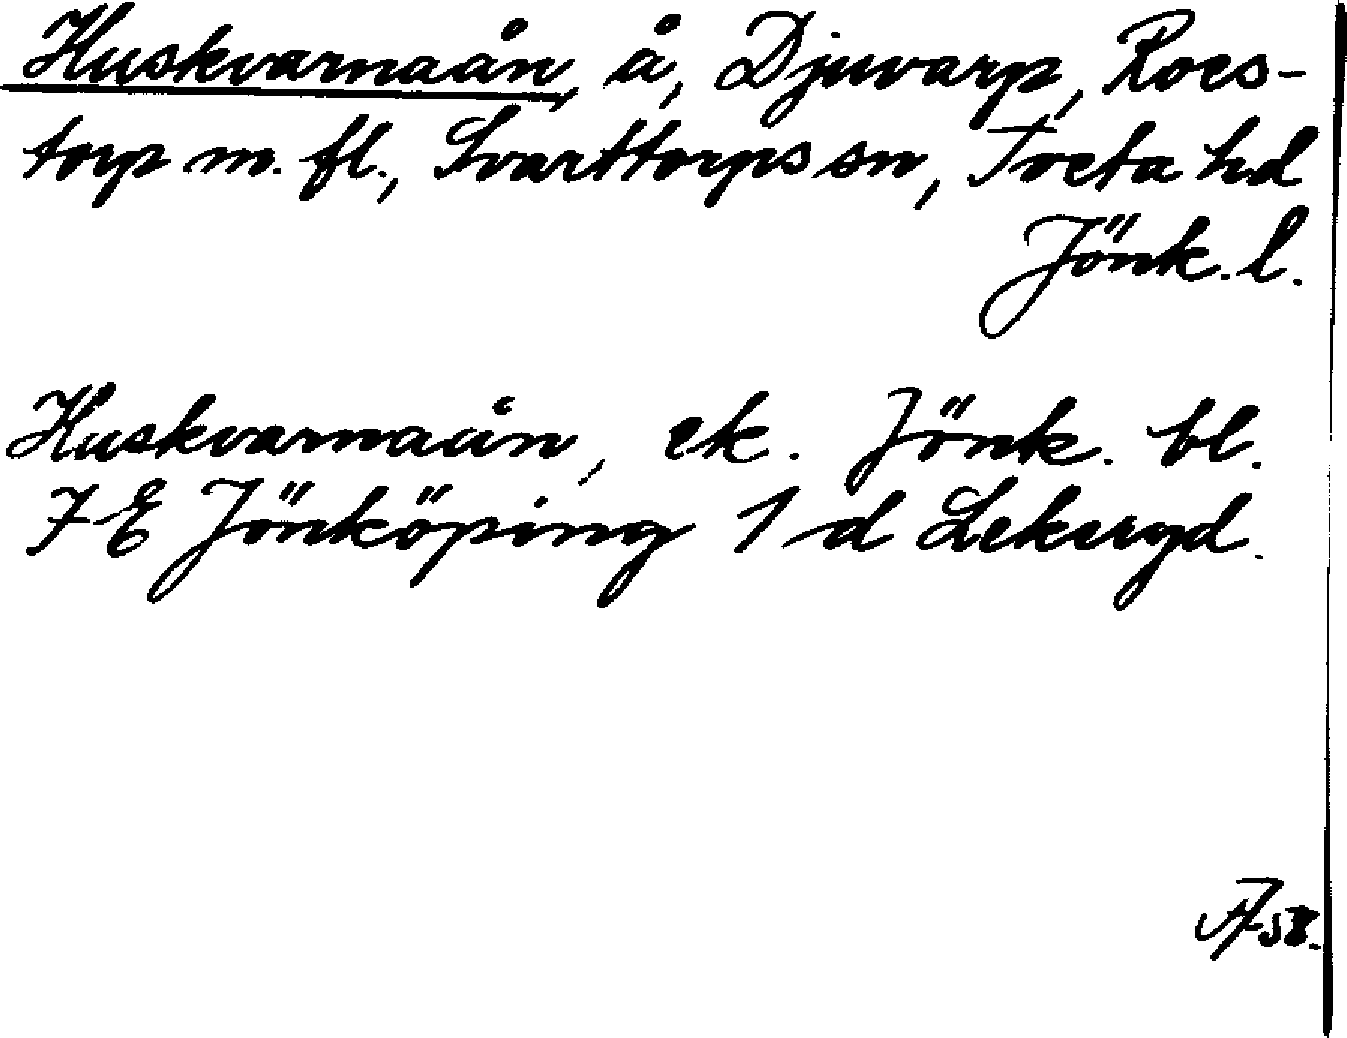 Huskvarnaån, å, Djuvarp, Roes-
torp m. fl., Svarttorps sn, Tveta hd
Jönk. l.
Huskvarnaån, ek. Jönk. bl.
7 E Jönköping 1 d Lekeryd.
58.